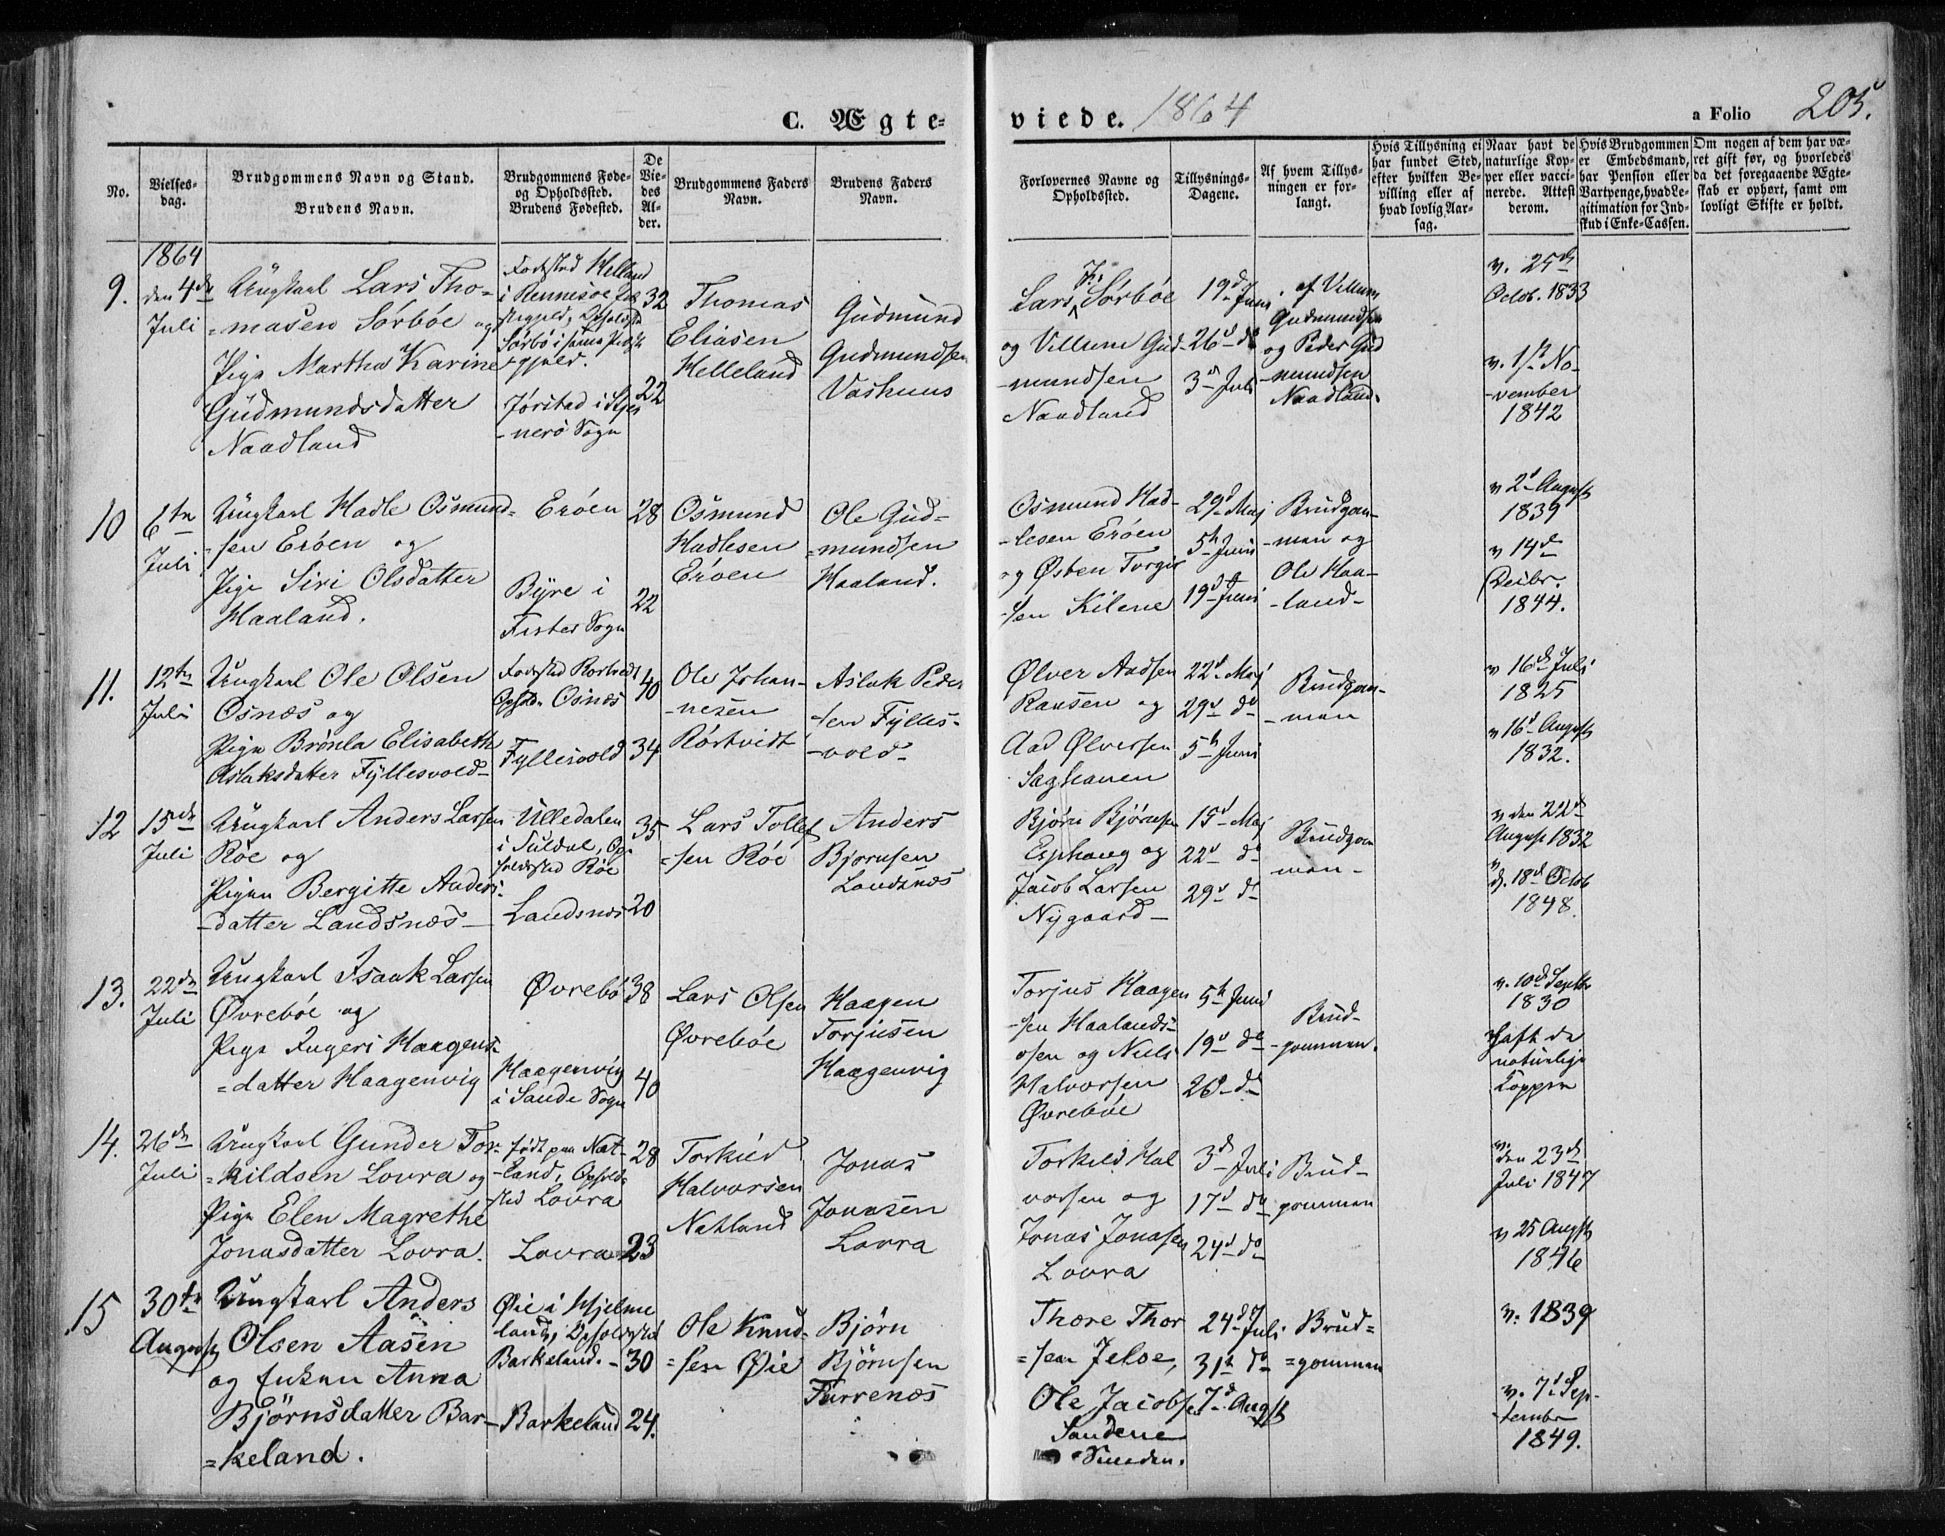 C. Ægte-
viede. 1864
a Folio 205.
No.
Vielses-
dag.
Brudgommens Navn og Stand.
Brudens Navn.
Brudgommens Føde-
og Opholdssted.
Brudens Fødested.
De
Vie-
des
Al-
der.
Brudgommens Faders
Navn.
Brudens Faders
Navn.
Forlovernes Navne og
Opholdssted.
Tillysnings-
Dagene.
Af hvem Tillys-
ningen er for-
langt.
Hvis Tillysning ei
har fundet Sted,
efter hvilken Be-
villing eller af
hvad lovlig Aar-
sag.
Naar havt de
naturlige Kop-
per eller vacci-
nerede. Attest
derom.
Hvis Brudgommen
er Embedsmand,
har Pension eller
Vartpenge, hvad Le-
gitimation for Ind-
skud i Enke-Cassen.
Om nogen af dem har væ-
ret gift før, og hvorledes
da det foregaaende Ægte-
skab er ophørt, samt om
lovligt Skifte er holdt.
1864
9.
den 4de
Juli
Ungkarl Lars Tho-
=masen Sörböe og
Pige Martha Karine
Gudmundsdatter
Naadland
Fødested Helland
i Rennesøe
Sörbö i samme
gjeld.
Jørstad i Stjer
-nerö Sogn
32
22
Thomas
Eliasen
Helleland
Gudmund
Gudmundsen
Vashuus
Lars Sörböe
og Villum Gud
-mundsen
Naadland
19d Juni
26d do
3d Juli
af Villum
Gudmundsen
og Peder Gud
-mundsen
Naadland.
v. 25de
Octob. 1833
v. 1ste No-
-vember
1842
10
6te
Juli
Ungkarl Hadle Osmund=
-sen Eröen og
Pige Siri Olsdatter
Haaland.
Eröen
Byre i
Fister Sogn
28
22
Osmund
Hadlesen
Eröen
Ole Gud=
=mundsen
Haaland.
Osmund Had-
-lesen Eröen
og Østen Torgis
-sen Kilene
29d Maj
5te Juni
19d Juni
Brudgom-
-men og
Ole Haa-
-land-
v 2d August
1839
v 14de
Decbr.
1844.
11.
12te
Juli
Ungkarl Ole Olsen
Osnæs og
Pige Brönla Elisabeth
Aslaksdatter Fyllesvold-
Fødested Rörtvedt
Osnæs
Fyllesvold
40
34
Ole Johan-
-nesen
Rörtvidt
Aslak Peder
-sen Fylles-
-vold-
Ølver Aadsen
Raasen og
Aad Ølversen
Saghauen
22d Maj
29d do
5te Juni
Brudgom-
-men
v 16de Juli
1825
v 16d August
1832.
12
15de
Juli
Ungkarl Anders Larsen
Röe og
Pigen Bergitte Anders-
-datter Landsnæs-
Ulledalen
i Suldal, Op-
holdssted Röe
Landsnæs
35
20
Lars Tollef
=sen Röe
Anders
Bjørnsen
Landsnæs
Bjørn Bjørnsen
Esphaug og
Jacob Larsen
Nygaard-
15d Maj
22d do
29d do
Brudgom
men-
v den 22de
August 1832
v
d. 18d Octob
1848.
13.
22de
Juli
Ungkarl Isaak Larsen
Øvreböe og
Pige Ingeri Haagens=
=datter Haagenvig
Øvrebö
Haagenvig
i Sande Sogn
38
40
Lars Olsen
Øvreböe
Haagen
Torjusen
Haagenvig
Torjus Haagen
-sen Haalands-
osen og Niels
Halvorsen
Øvreböe
5te Juni
19d do
26d do
Brud-
-gommen.
v. 10de Septbr
1830
Haft de
naturlige
Kopper
14.
26de
Juli
Ungkarl Gunder Tor-
=kildsen Lovra og
Pige Elen Magrethe
Jonasdatter Lovra.
født paa Nat-
-land, Ophold-
sted Lovra
Lovra
28
23
Torkild
Halvorsen
Natland
Jonas
Jonasen
Lovra
Torkild Hal
vorsen og
Jonas Jonasen
Lovra
3de Juli
17d do
24d do
Brud-
gommen
v.
den 23de
Juli 1847
v 25 August
1846
15
30te
August
Ungkarl Anders
Olsen Aasen
og Enken Anna
Björnsdatter Bar-
=keland.
Øie i Hjelme
land, Opholdssted
Barkeland. -
Barkeland
30
24.
Ole Knud-
=sen Øie
Björn
Björnsen
Furrenæs
Thore Thor
=sen Jelse,
Ole Jacobsen
Sandene
24d Juli
31te do
7d August
Brud=
=gommen
v. 1839
v. 7d Sep-
-tembr
1849.